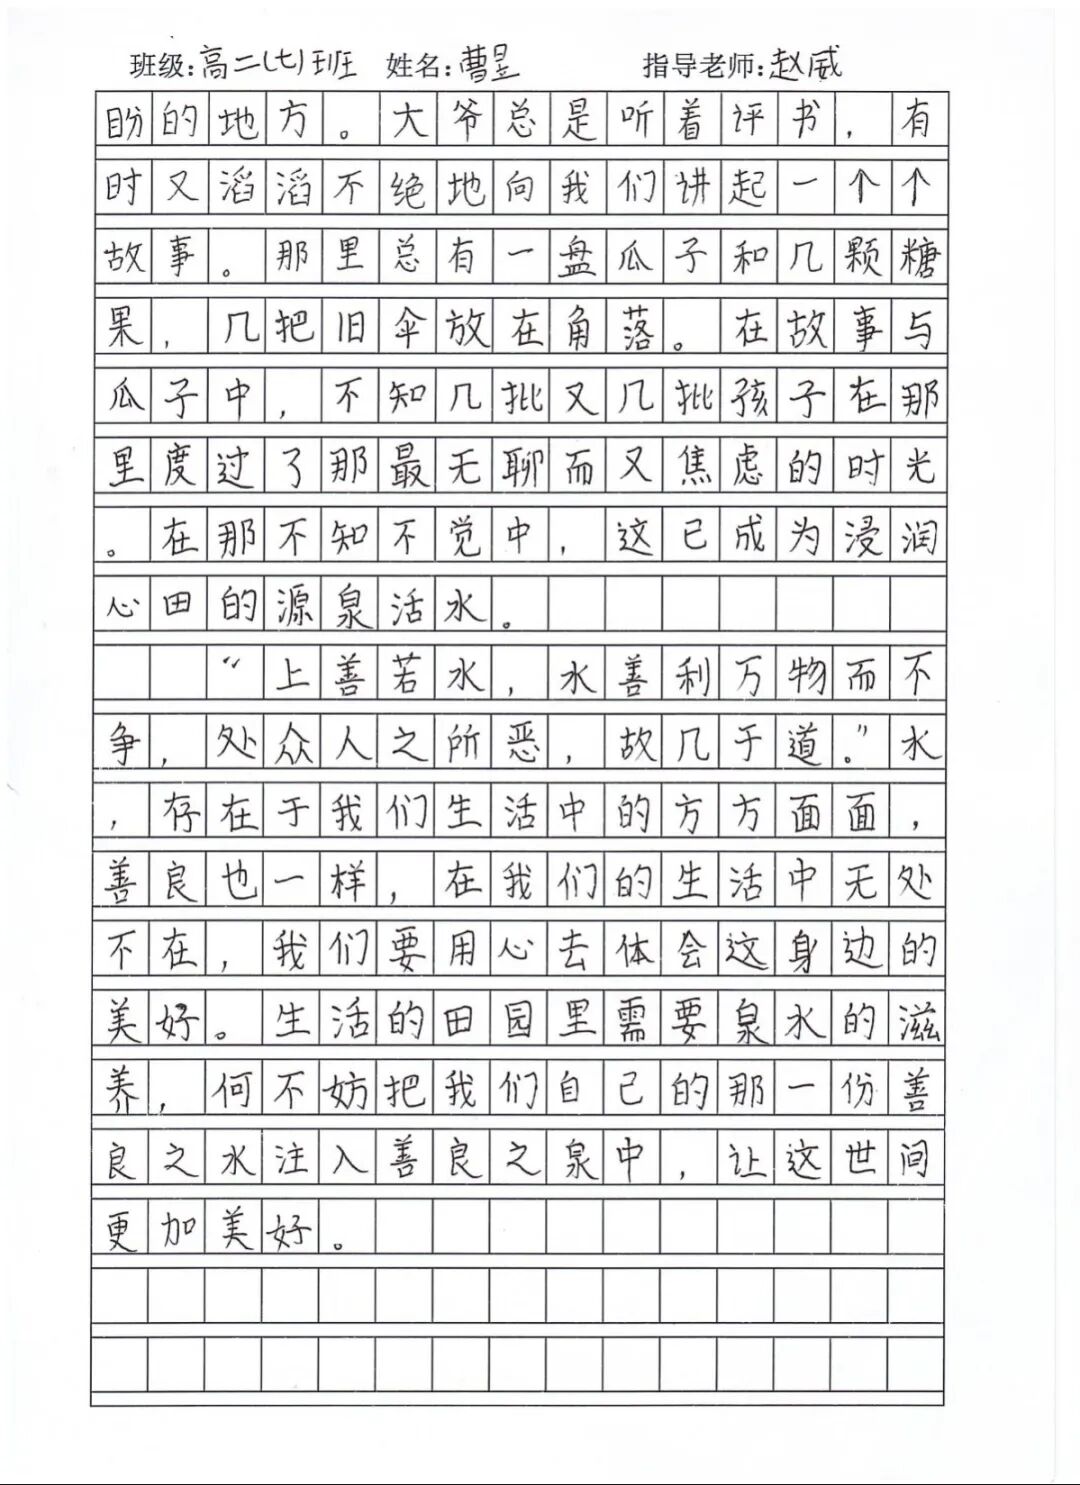 班级:高二(七)班 姓名:曹昱 指导老师:赵威
盼的地方。大爷总是听着评书,有
时又滔滔不绝地向我们讲起一个个
故事。那里总有一盘瓜子和几颗糖
果,几把旧伞放在角落。在故事与
瓜子中,不知几批又几批孩子在那
里度过了那最无聊而又焦虑的时光
。在那不知不觉中,这已成为浸润
心田的源泉活水。
“上善若水,水善利万物而不
争,处众人之所恶,故几于道。”水
,存在于我们生活中的方方面面,
善良也一样,在我们的生活中无处
不在,我们要用心去体会这身边的
美好。生活的田园里需要泉水的滋
养,何不妨把我们自己的那一份善
良之水注入善良之泉中,让这世间
更加美好。